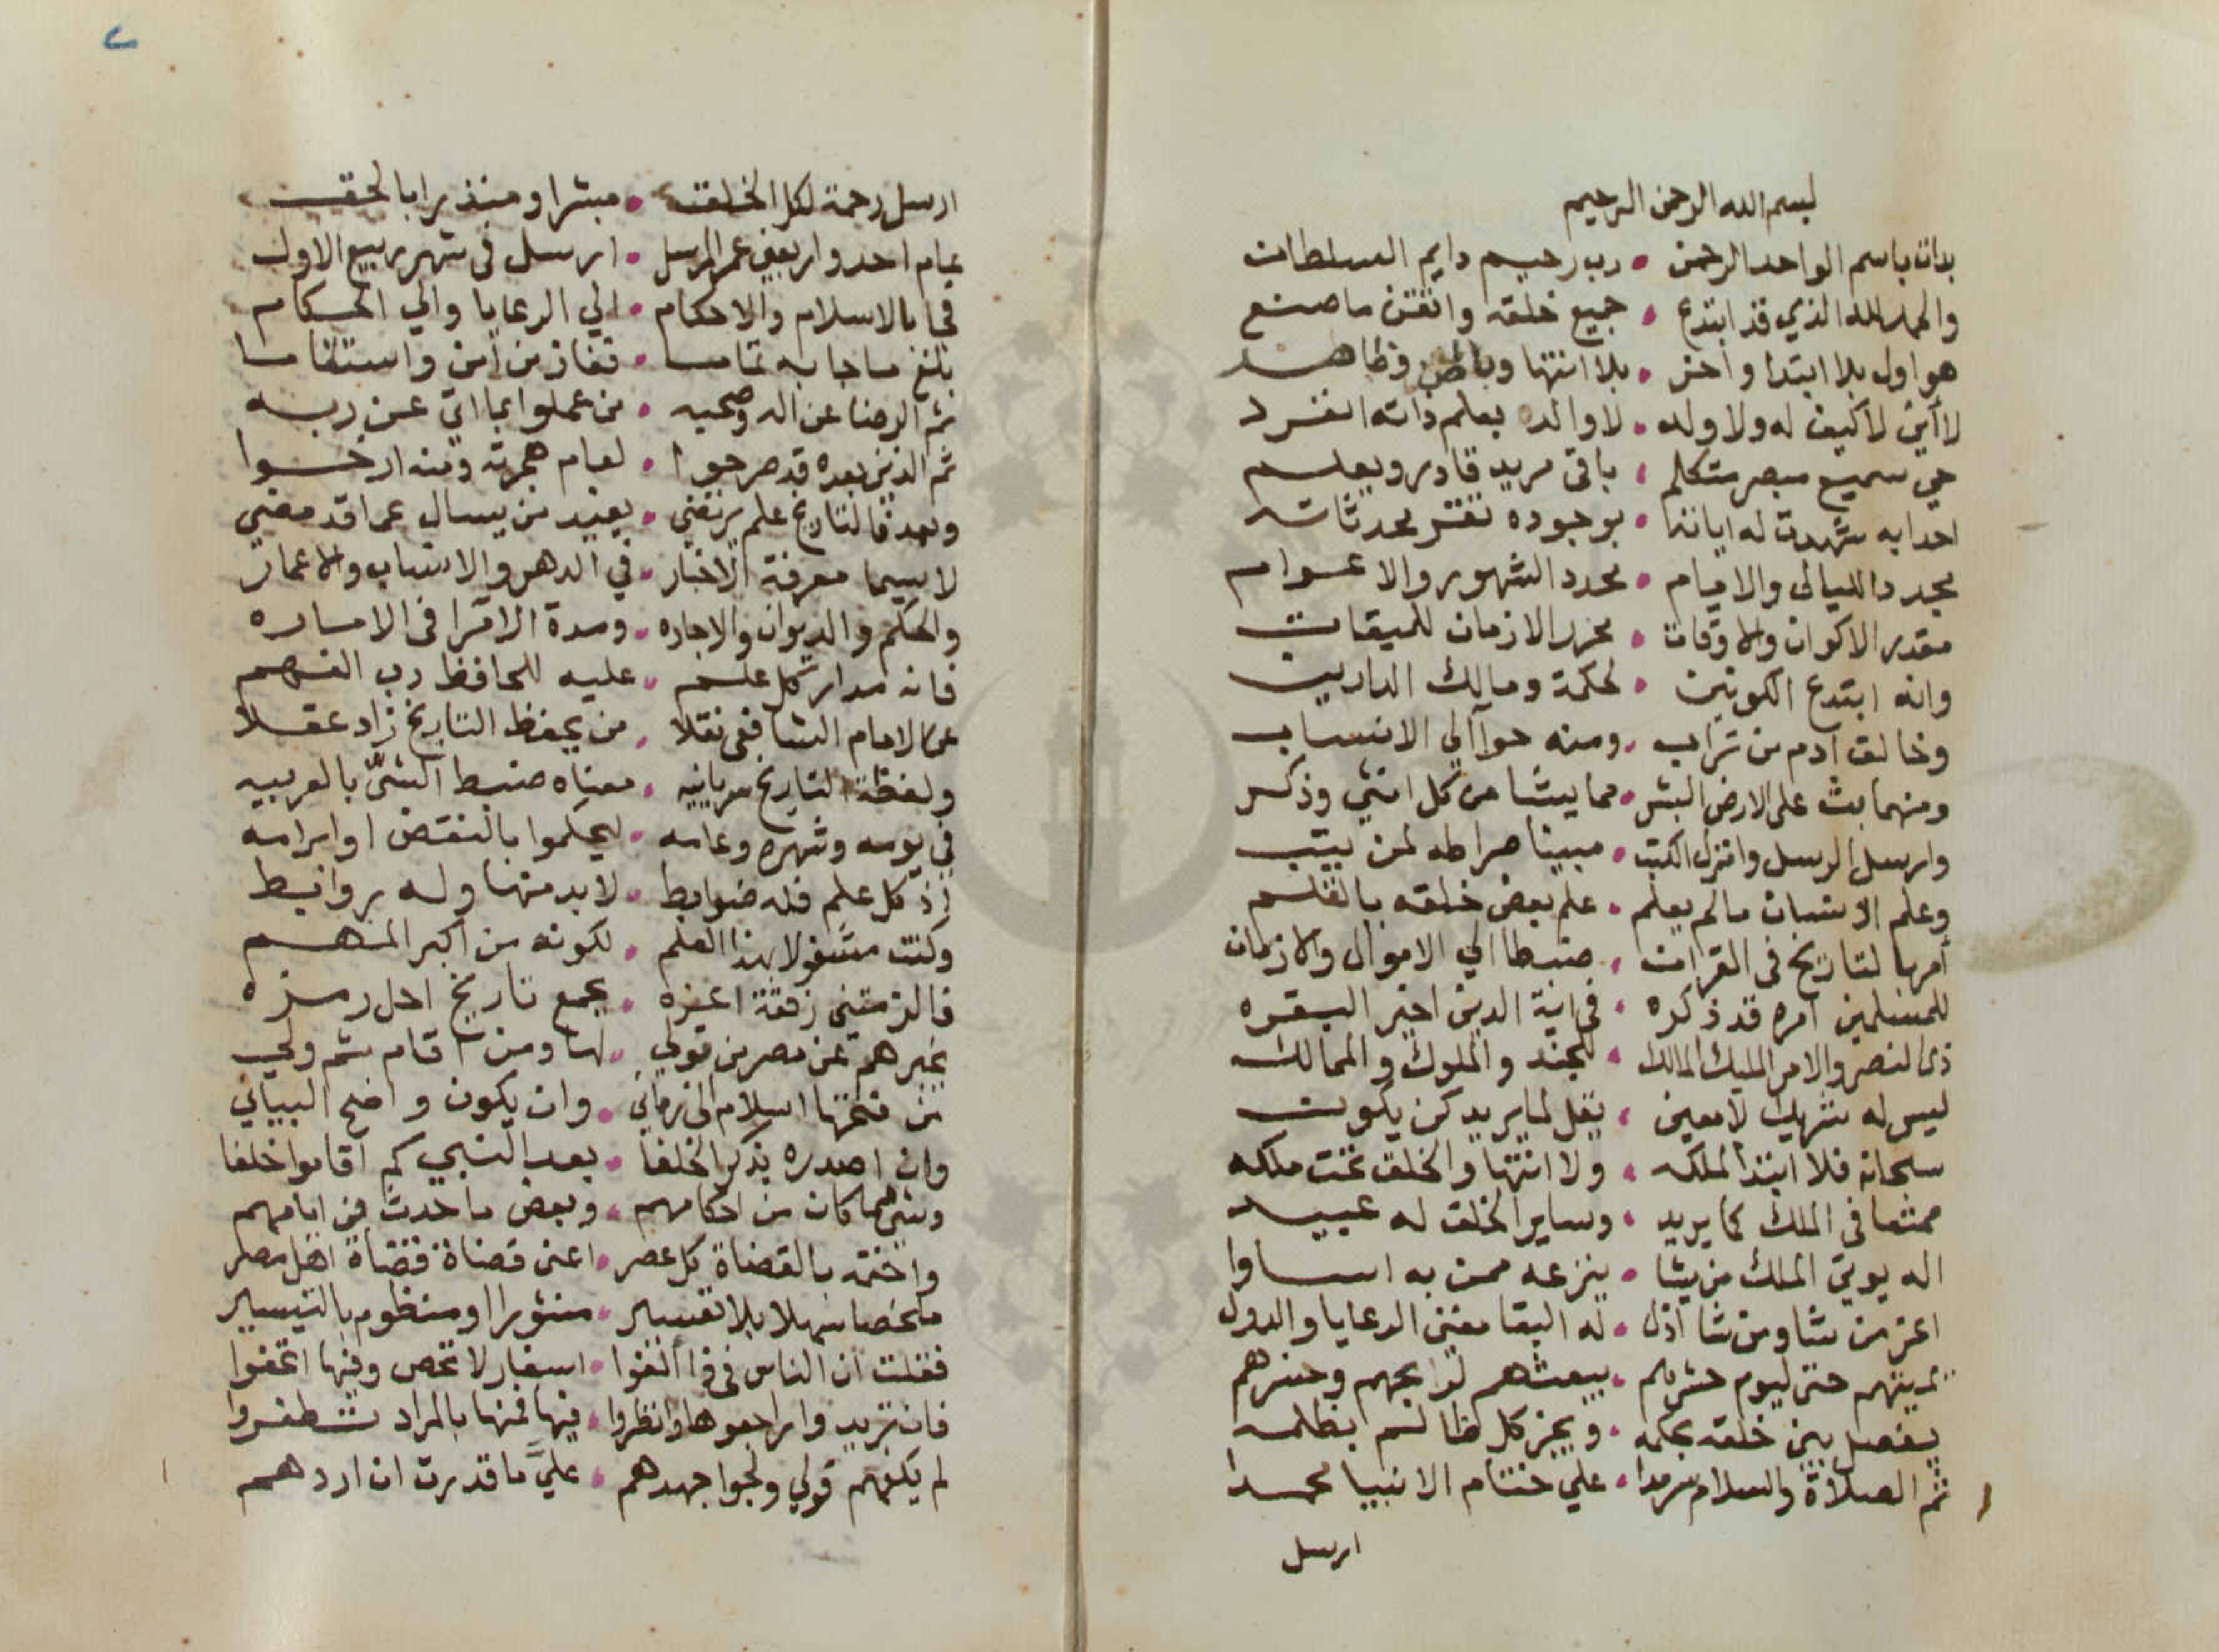 بسم الله الرحمن الرحيم
بدات باسم الواحد الرحمن • رب رحيم دايم السلطان
والحمد لله الذي قد ابتدع • جميع خلقه واتقن ما صنع
هو اول بلا ابتدا واخر • بلا انتها وباطن وظاهر
لا أين لا كيف له ولا ولد • لا والد بعلم ذاته انفرد
حي سميع مبصر متكلم • باقي مريد قادر ويعلم
احدابه شهدت له اياته • بوجوده تقر محدثاته
مجدد الليالي والايام • محدد الشهور والاعوام
مقدر الاكوان والاوقات • محرر الازمان للميقات
وانه ابتدع الكونين • لحكمة ومالك الدارين
وخالق آدم من تراب • ومنه حوآ الي الانساب
ومنهما بث على الارض البشر • مما يشا من كل انثي وذكر
وارسل الرسل وانزل الكتب • مبينا صراطه لمن يتب
وعلم الانسان مالم يعلم • علم بعض خلقه بالقلم
أمر بالتاريخ في القران • ضبطا الي الاموال والازمان
للمسلمين امره قد ذكره • في اية الدين اخير البقره
ذي النصر والامر المليك المالك • للجند والملوك والممالك
ليس له شريك لا معين • يقل لما يريد كن يكون
سبحانه فلا ابتدا لملكه • ولا انتها والخلق تحت ملكه
في الملك كما يريد • وساير الخلق له عبيد
اله يوتي الملك من يشا • ينزعه ممن به اساوا
اعز من شا ومن شا أذل • له البقا مفني الرعايا والدول
يميتهم حتى ليوم حشرهم • يبعثهم
يفصل بين خلقه بحكمه • ويجز كل ظالم بظلمه
ثم الصلاة والسلام سرمدا • علي ختام الانبيا محمدا
ارسل
٢
ارسل رحمة لكل الخلق • مبشرا ومنذيرا بالحق
عام احد واربعين عمر المرسل • ارسل في شهر ربيع الاول
فجا بالاسلام والاحكام • الي الرعايا والي الحكام
بلغ ما جا به تماما • ففاز من آمن واستقاما
ثم الرضا عن اله وصحبه • من عملوا بما اتي عن ربه
ثم الذين بعده قد صرحوا • لعام هجرته ومنه ارخوا
وبعد فالتاريخ علم يرتضي • يفيد من يسال عما قد مضي
لا سيما معرفة الاخبار • في الدهر والانساب والاعمار
والحكم والديوان والاجاره • ومدة الاقرا في الاماره
فانه مدار كل علم • عليه للحافظ رب الفهم
عن الامام الشافعي نقلا • من يحفظ التاريخ زاد عقلا
ولفظة التاريخ سريانيه • معناه ضبط الشئ بالعربيه
في يومه وشهره وعامه • ليحكموا بالنقض او ابرامه
إذ كل علم فله ضوابط • لا بد منها وله روابط
وكنت مشغولا بهذا العلم • لكونه من أكبر المهم
فالزمتني رفقة اعزه • بجمع تاريخ احل رمزه
يخبرهم عن مصر من تولي • لها ومن اقام ثم ولي
من فتحها اسلام الى زماني • وان يكون واضح البيان
وان اصدره بذكر الخلفا • بعد النبي كم اقاموا خلفا
وشي مما كان من احكامهم • وبعض ما حدث في ايامهم
واختمه بالقضاة كل عصر • اعني قضاة قضاة اهل مصر
ملخصا سهلا بلا تفسير • منثورا او منظوم بالتيسير
فقلت ان الناس في ذا ألفوا • اسفار لا تحص وفيها اتحفوا
فان تريد وا راجعوها وانظروا • فيها فمنها بالمراد تظفروا
لم يكفهم قولي ولجوا جهدهم • عليَّ ما قدرت ان اردهم